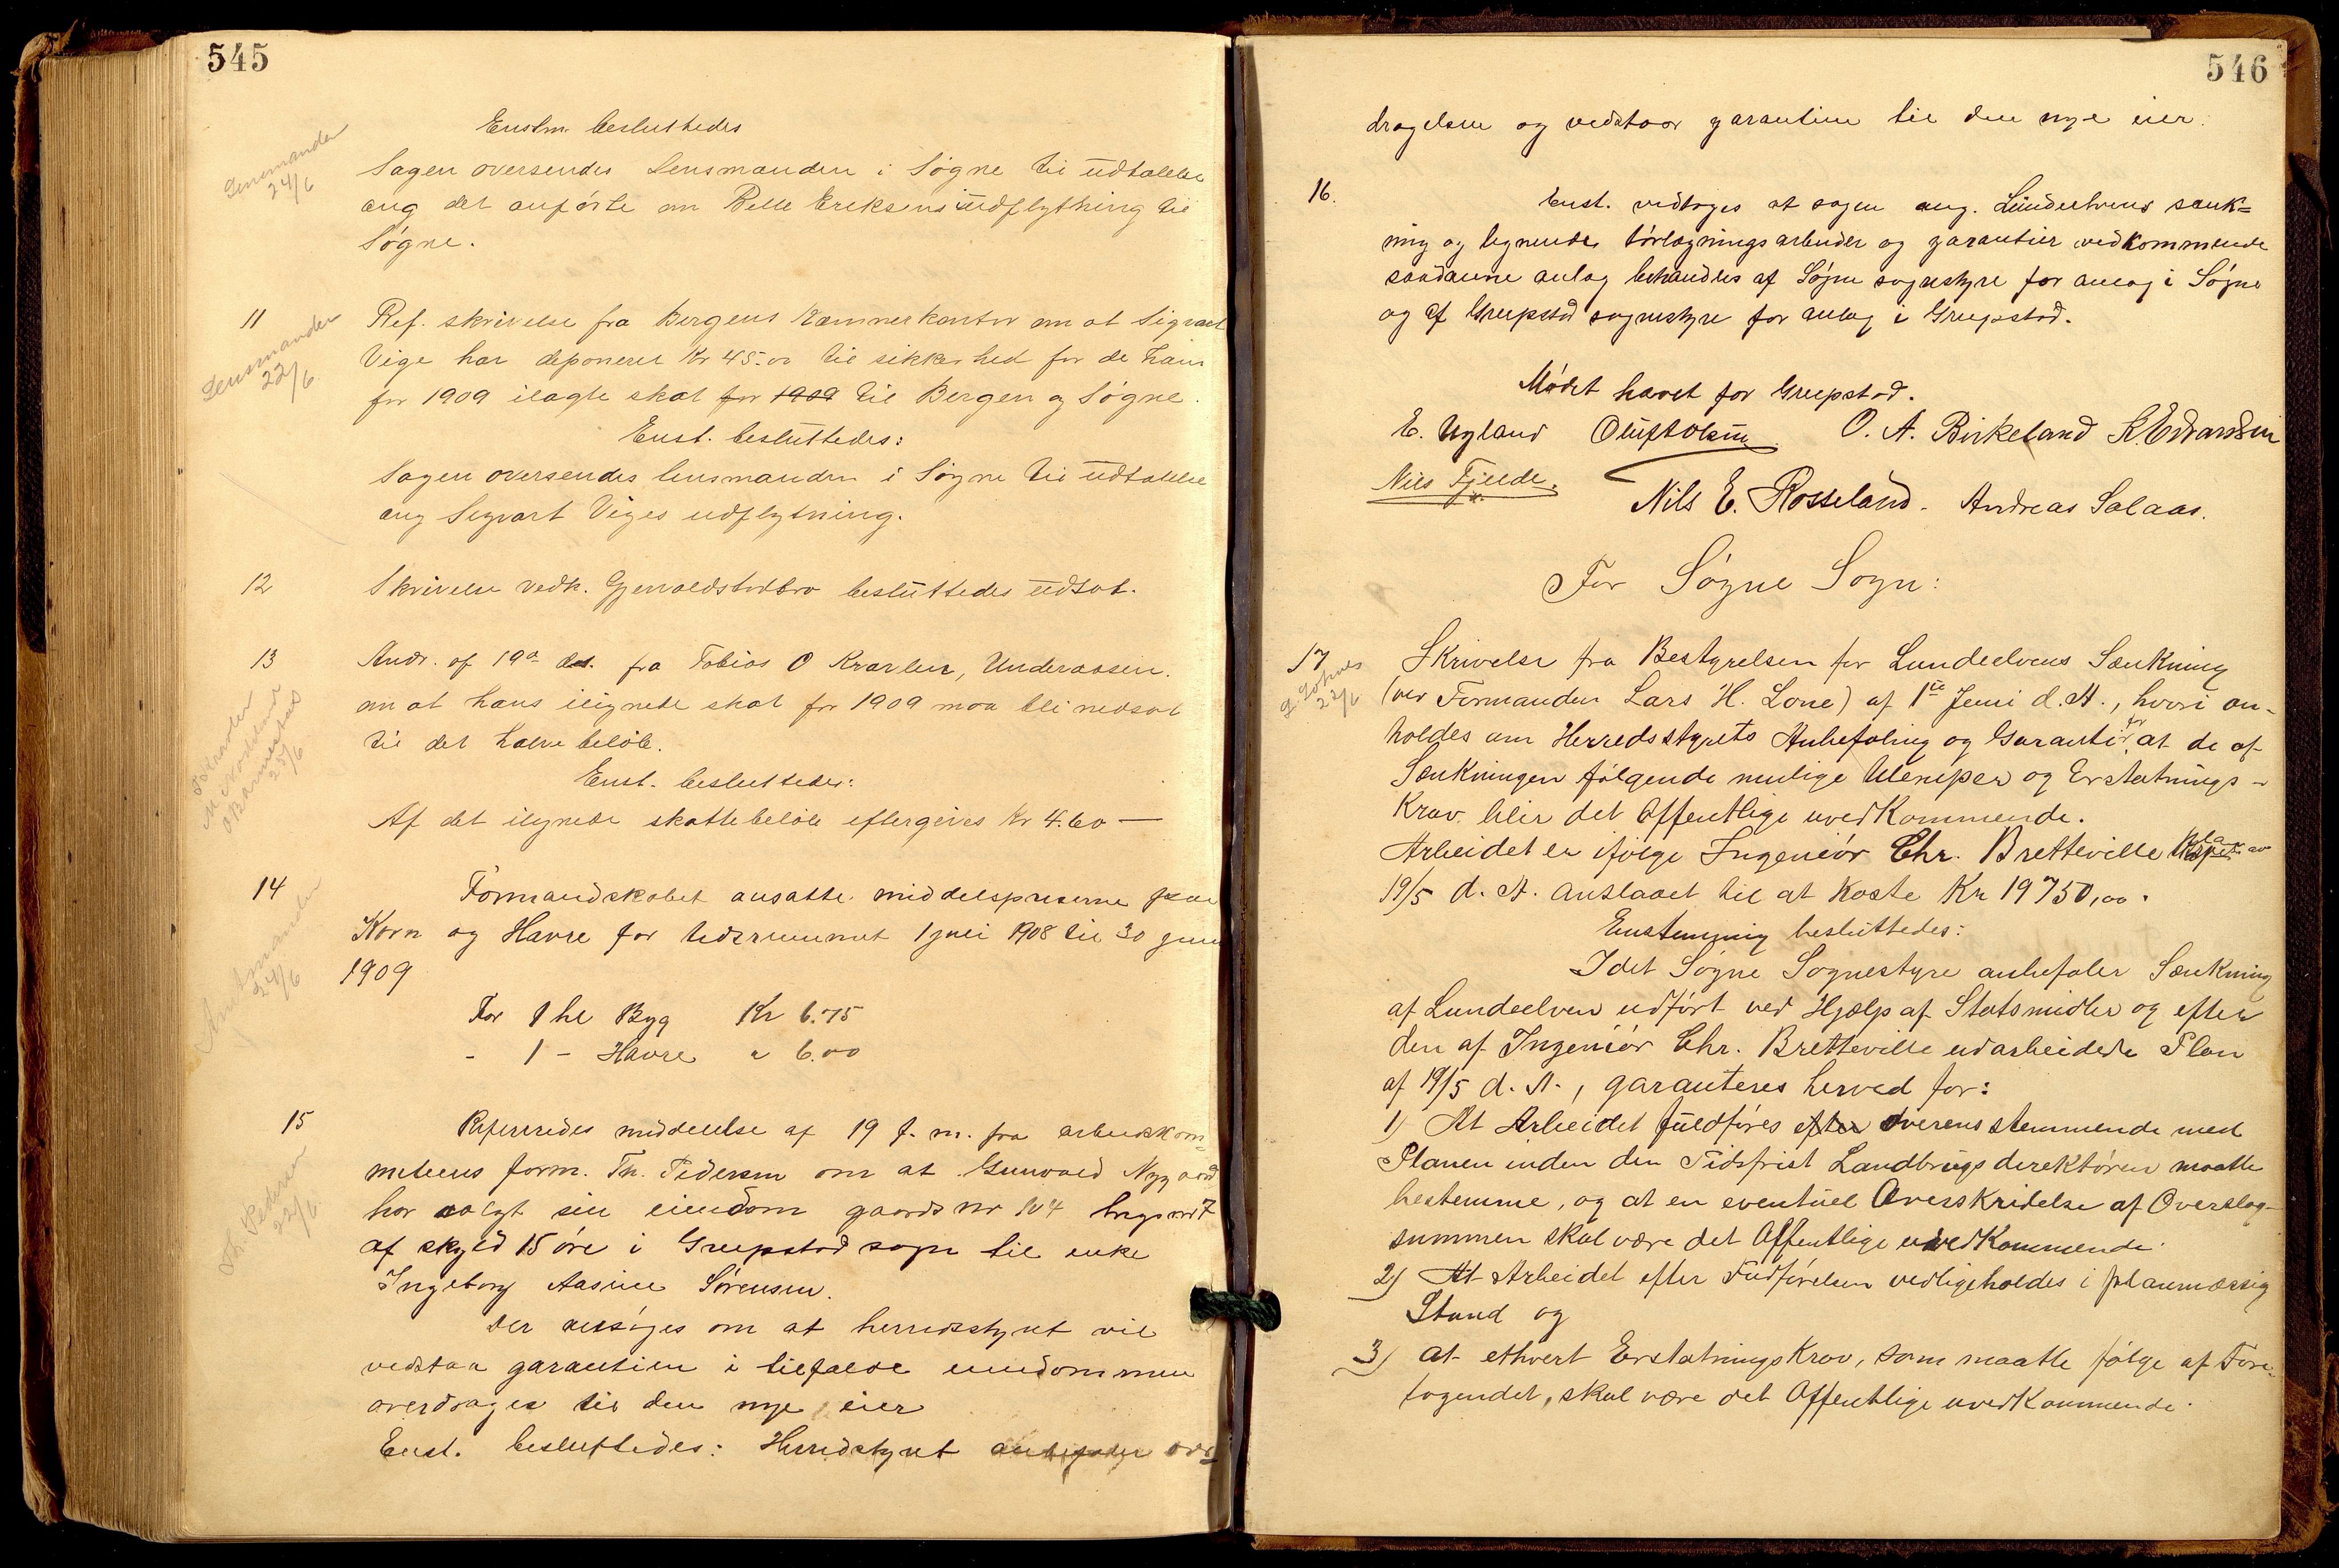 545
Enstm. besluttedes
Lensmanden
24/6
Sagen oversendes Lensmanden i Søgne til udtalelse
ang det anførte om Pelle Eriksens udflytning til
Søgne.
11
Lensmanden
22/6
Ref. skrivelse fra Bergens Kæmnerkontor om at Sigvart
Vige har deponeret Kr 45.00 til sikkerhed for de ham
for 1909 ilagte skat for 1909 til Bergen og Søgne.
Enst. besluttedes:
Sagen oversendes lensmanden i Søgne til udtalelse
ang Sigvart Viges udflytning.
12
Skrivelse vedk. Gjervoldstadbro besluttedes udsat.
13
Andr. af 19de ds. fra Tobias O Kravlen, Underaasen.
om at hans ilignede skat for 1909 maa bli nedsat
til det halve beløb.
Enst. besluttedes:
Af det ilignede skattebeløb eftergives Kr 4.60 —
14
24/6
Formandskabet ansatte middelspriserne paa
Korn og Havre for tidsrummet 1 juli 1908 til 30 juni
1909
For 1 hl Byg Kr 6.75
- 1 - Havre " 6.00
15
Th. Pedersen
22/6
Refereredes middelelse af 19 f. m. fra arbeiderkom-
miteens form. Th. Pedersen om at Gunvald Nygaard
har solgt sin eiendom gaards nr 104 brugs nr 7
af skyld 15 øre i Greipstad sogn til enke
Ingeborg Aasine Sørensen.
Der ansøges om at herredsstyret vil
vedstaa garantien i tilfælde eiendommen
overdrages til den nye eier
Enst. besluttedes: Herredstyret anbefaler over
546
dragelsen og vedstaar garantien til den nye eier.
16.
Enst. vedtoges at sagen ang. Lundeelvens sænk=
ning og lignende tørlægningsarbeider og garantier vedkommende
saadanne anlæg behandles af Søgne sognestyre for anlæg i Søgne
og af Greipstad sognestyre for anlæg i Greipstad.
Mødet hævet for Greipstad.
E. Ugland Oluf Olsen O. A. Birkeland K. Edvardsen
Nils Fjelde. Nils E. Rosseland. Andreas Salaas.
For Søgne Sogn:
17
22/6
Skrivelse fra Bestyrelsen for Lundeelvens Sænkning
(ved Formanden Lars H. Lone) af 1ste Juni d. A., hvori an-
holdes om Herredsstyrets Anbefaling og Garanti for, at de af
Sænkningen følgende mulige Ulemper og Erstatnings-
Krav blir det Offentlige uvedkommende.
Arbeidet er ifølge Ingeniør Chr. Bretteville Plan av
19/5 d. A. anslaaet til at koste Kr 19750,00.
Enstemmig besluttedes:
Idet Søgne Sognestyre anbefaler Sænkning
af Lundeelven udført ved Hjælp af Statsmidler og efter
den af Ingeniør Chr. Bretteville udarbeidede Plan
af 19/5 d. A., garanteres herved for:
1) At Arbeidet fuldføres efter overensstemmende med
Planen inden den Tidsfrist Landbrugsdirektøren maatte
bestemme, og at en eventuel Overskridelse af Overslag-
summen skal være det Offentlige uvedkommende.
2) At Arbeidet efter Fuldførelsen vedligeholdes i planmæssig
Stand og
3) at ethvert Erstatningskrav, som maatte følge af Fore-
tagendet, skal være det Offentlige uvedkommende.